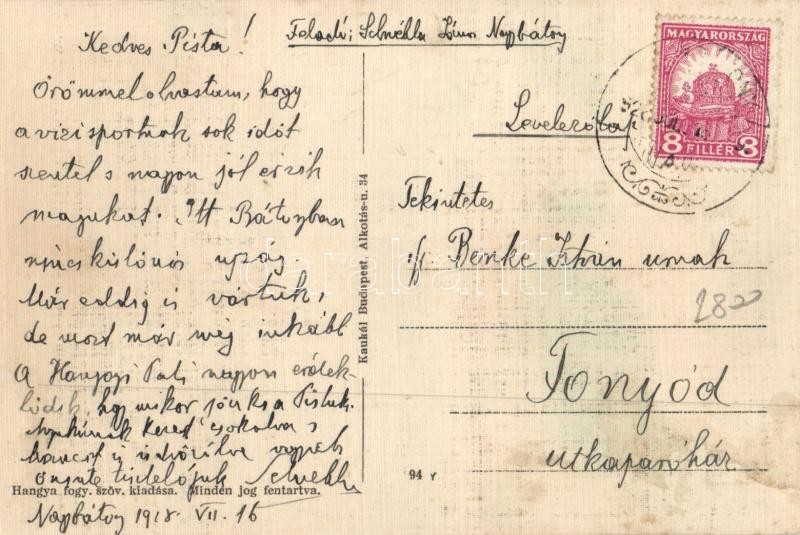 Kedves Pista!
Feladó: Schnékla János Nagybátony
Örömmel olvastam, hogy
a vizisportnak sok időt
szentel s nagyon jól érzik
magukat. Itt Bátonyban
nincs különös ujság.
Már eddig is vártuk,
de most már még inkább
A Hangogi Pali nagyon érdek-
lődik, hogy mikor jönks a Pistuk.
Kezét csókolva s
is üdvözölve vagyok
őszinte tisztelőjük
Hangya fogy. szöv. kiadása. Minden jog fentartva.
Nagybátony 1928. VII. 16
Kaukál Budapest, Alkotás-u. 34
94 Y
MAGYARORSZÁG
8 FILLÉR 8
Levelezőlap
Tekintetes
ifj Benke István urnak
2820
Fonyód
utkaparóház
darabanth